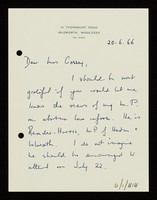 THORNBURY ROAD
ISLEWORTH, MIDDLESEX
20.6.66
Dear Mrs
I should be most
grateful if you would let me
know the views of my M.P.
on abortion law reform. He is
Reader-Harris, M.P. for Heston &
Isleworth. I do not imagine
he should be encouraged to
attend on July 22.